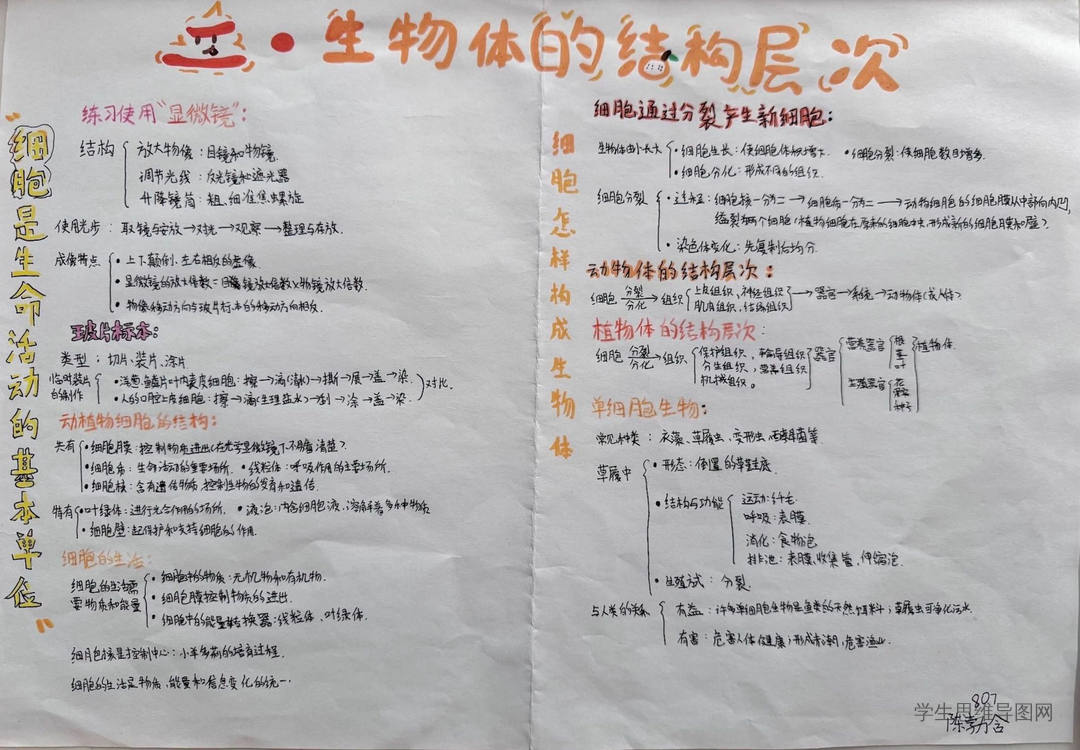 生物体的结构层次
"细胞是生命活动的基本单位"
练习使用"显微镜":
结构
放大物像:目镜和物镜.
调节光线:反光镜和遮光器
升降镜筒:粗、细准焦螺旋
使用步: 取镜与安放→对光→观察→整理与存放.
成像特点
·上下颠倒、左右相反的虚像.
·显微镜的放大倍数=目镜放大倍数×物镜放大倍数.
·物像移动方向与玻片标本的移动方向相反.
玻片标本:
类型:切片、装片、涂片
临时装片的制作
·洋葱鳞片叶内表皮细胞:擦→滴(清水)→撕→展→盖→染.
·人的口腔上皮细胞:擦→滴(生理盐水)→刮→涂→盖→染.
对比.
动植物细胞的结构:
共有
·细胞膜:控制物质进出(在光学显微镜下不易看清楚).
·细胞质:生命活动的重要场所. ·线粒体:呼吸作用的主要场所.
·细胞核:含有遗传物质,控制生物的发育和遗传.
特有
·叶绿体:进行光合作用的场所. ·液泡:内含细胞液,溶解着多种物质
·细胞壁:起保护和支持细胞的作用.
细胞的生活:
细胞的生活需要物质和能量
·细胞中的物质:无机物和有机物.
·细胞膜控制物质的进出.
·细胞中的能量转换器:线粒体、叶绿体.
细胞核是控制中心:小羊多莉的培育过程.
细胞的生活是物质,能量和信息变化的统一.
细胞怎样构成生物体
细胞通过分裂产生新细胞:
生物体由小长大
·细胞生长:使细胞体积增大. ·细胞分裂:使细胞数目增多.
·细胞分化:形成不同的组织.
细胞分裂
·过程:细胞核一分为二→细胞质一分为二→动物细胞的细胞膜从中部向内凹,
缢裂为两个细胞(植物细胞在原来的细胞中央,形成新的细胞膜和壁).
·染色体变化:先复制后均分.
动物体的结构层次:
细胞 分裂 分化→组织 上皮组织,神经组织 肌肉组织,结缔组织→器官→系统→动物体(或人体)
植物体的结构层次:
细胞 分裂 分化→组织 保护组织,输导组织 分生组织,营养组织 机械组织。 器官 营养器官 根 茎 叶 生殖器官 花 果实 种子 植物体.
单细胞生物:
常见种类:衣藻、草履虫、变形虫、酵母菌等
草履虫
·形态:倒置的草鞋底.
·结构与功能
运动:纤毛
呼吸:表膜.
消化:食物泡
排泄:表膜、收集管、伸缩泡.
·生殖方式:分裂.
与人类的关系
有益:许多单细胞生物是鱼类的天然饵料;草履虫可净化污水
有害:危害人体健康;形成赤潮,危害渔业.
807
学生思维导图网